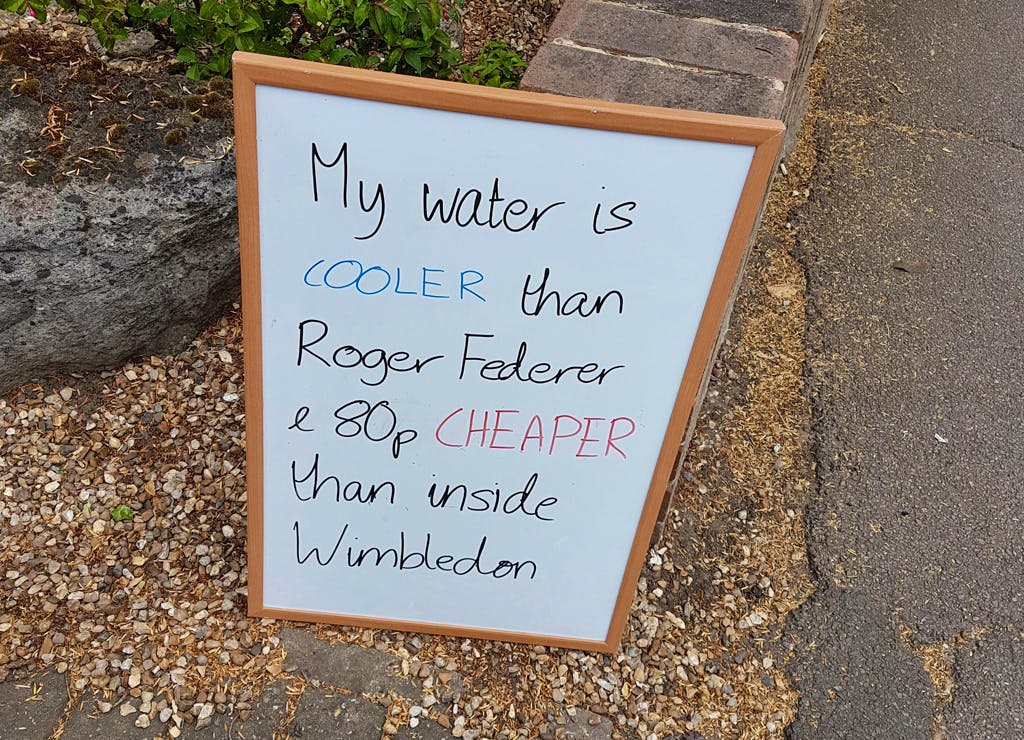 My water is
COOLER than
Roger Federer
& 80p CHEAPER
than inside
Wimbledon